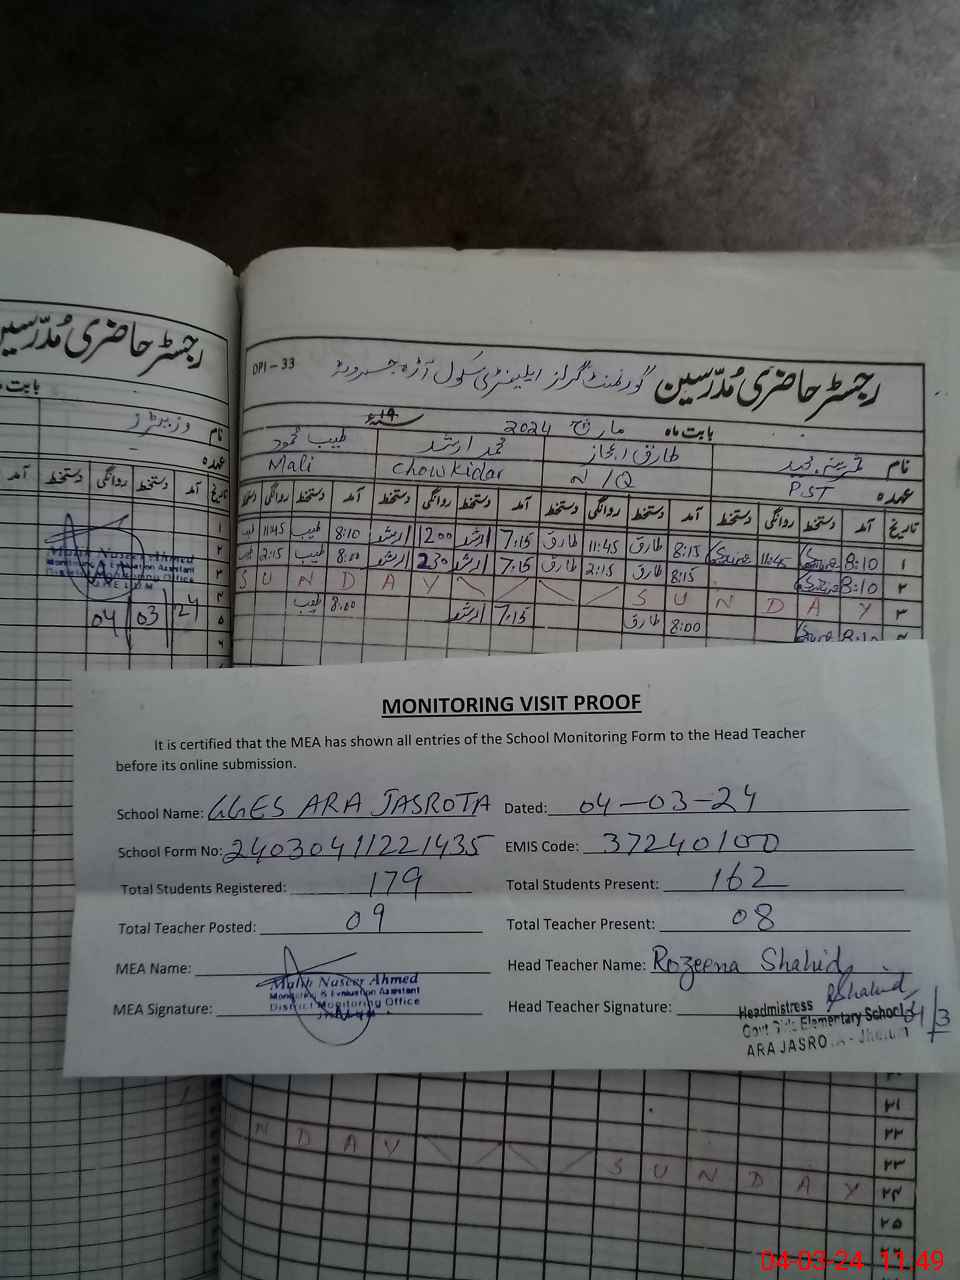 رجسٹر حاضری مُدرّسین
بابت ماہ
نام وزیٹرز
عہدہ
تاریخ آمد دستخط روانگی دستخط آمد
۱
۲
۳
۵
۶
Malik Naseer Ahmed
Monitoring & Evaluation Assistant
District Monitoring Office
JHELUM
04/03/24
DPI-33
رجسٹر حاضری مُدرّسین گورنمنٹ گرلز ایلیمنٹری سکول آڑہ جسروٹہ
بابت ماہ مارچ 2024 سنہ ۱۹ء
نام طارق اعجاز محمد ارشد طیب محمود
عہدہ PST N/Q Chowkidar Mali
تاریخ آمد دستخط روانگی دستخط آمد دستخط روانگی دستخط آمد دستخط روانگی دستخط آمد دستخط روانگی دستخط
۱ 8:10 11:45 8:15 طارق 11:45 طارق 7:15 ارشد 1200 ارشد 8:10 طیب 11:45 طیب
۲ 8:10 8:15 طارق 2:15 طارق 7:15 ارشد 230 ارشد 8:00 طیب 2:15 طیب
۳ SUNDAY SUNDAY
8:10 8:00 طارق 7:15 ارشد 8:00 طیب
MONITORING VISIT PROOF
It is certified that the MEA has shown all entries of the School Monitoring Form to the Head Teacher
before its online submission.
School Name: GGES ARA JASROTA Dated: 04-03-24
School Form No: 24030411221435 EMIS Code: 37240100
Total Students Registered: 179 Total Students Present: 162
Total Teacher Posted: 09 Total Teacher Present: 08
MEA Name: Head Teacher Name: Rozeena Shahid
Malik Naseer Ahmed
Monitoring & Evaluation Assistant
District Monitoring Office
JHELUM
MEA Signature: Head Teacher Signature: RShahid
Headmistress 04/3
Govt Girls Elementary School
ARA JASROTA - Jhelum
۲۱
۲۲
NDAY
۲۳
SUNDAY ۲۴
۲۵
۲۶
04-03-24 11:49